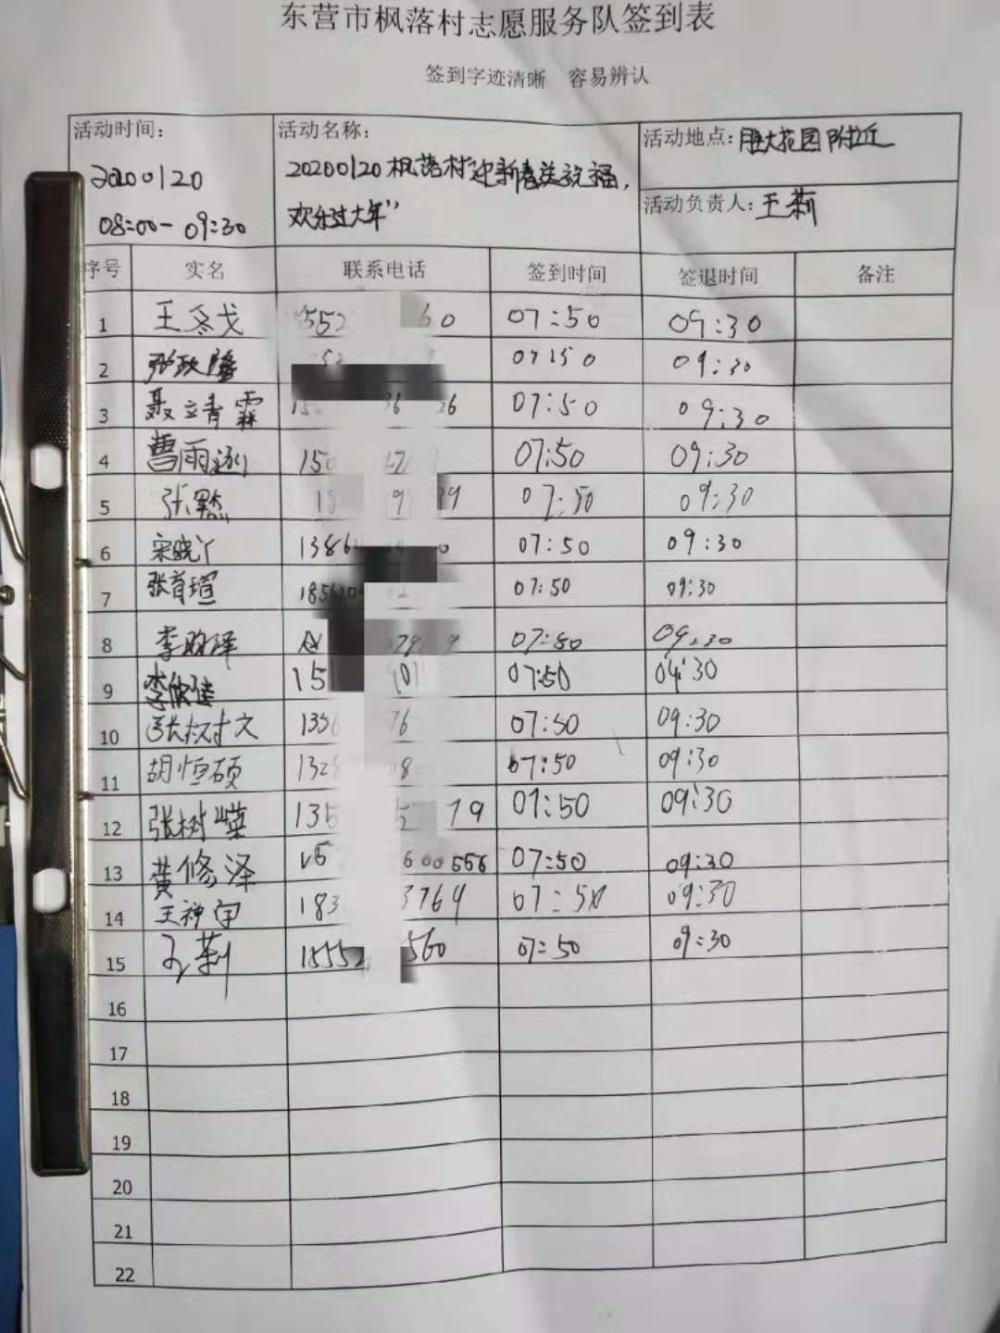 东营市枫落村志愿服务队签到表
签到字迹清晰 容易辨认
活动时间：
20200120
08:00-09:30
活动名称：
20200120枫落村"迎新春送祝福，
欢乐过大年"
活动地点：胜大花园附近
活动负责人：王莉
序号 实名 联系电话 签到时间 签退时间 备注
1 王冬戈 07:50 09:30
2 07:50 09:30
3 聂立青霖 07:50 09:30
4 曹雨 07:50 09:30
5 张 07:50 09:30
6 宋晓丫 1386 07:50 09:30
7 张育瑄 07:50 09:30
8 李 07:50 09:30
9 李 15 07:50 09:30
10 张树文 07:50 09:30
11 胡恒硕 132 07:50 09:30
12 张树嵘 135 79 07:50 09:30
13 黄修泽 600556 07:50 09:30
14 王神宇 183 3769 07:50 09:30
15 王莉 18552 560 07:50 09:30
16
17
18
19
20
21
22